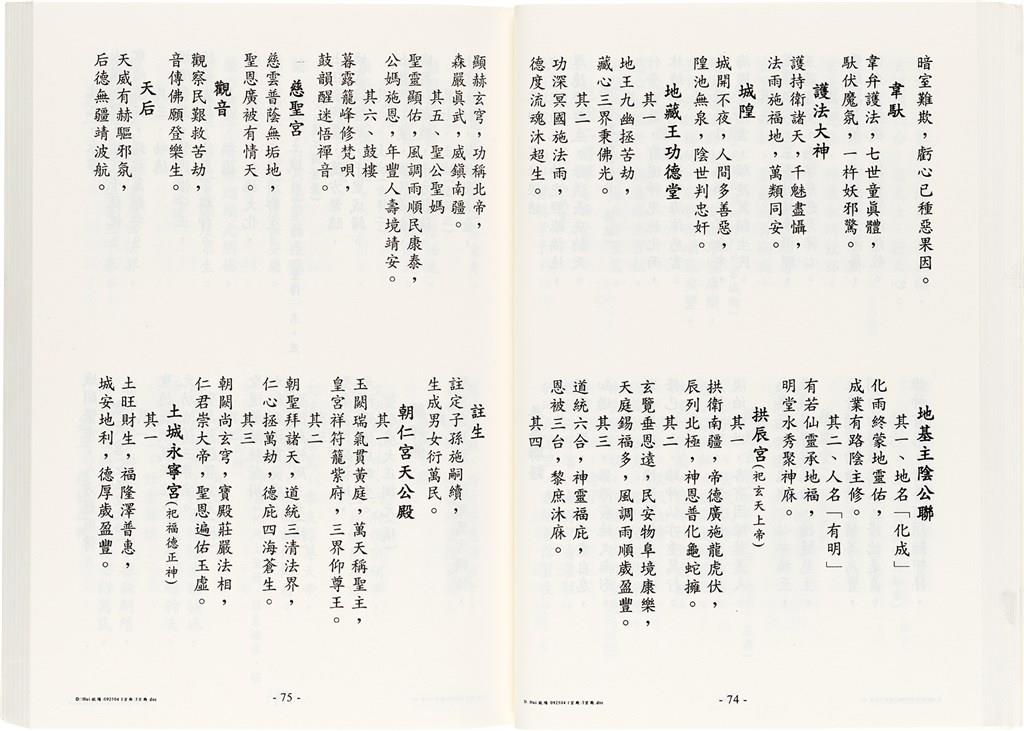 暗室難欺，虧心已種惡果因。
韋馱
韋弁護法，七世童眞體，
馱伏魔氛，一杵妖邪驚。
護法大神
護持衛諸天，千魅盡懾，
法雨施福地，萬類同安。
城隍
城開不夜，人間多善惡，
隍池無泉，陰世判忠奸。
地藏王功德堂
其一
地王九幽拯苦劫，
藏心三界秉佛光。
其二
功深冥國施法雨，
德度流魂沐超生。
地基主陰公聯
其一、地名「化成」
化雨終蒙地靈佑，
成業有路陰主修。
其二、人名「有明」
有若仙靈承地福，
明堂水秀聚神庥。
拱辰宮(祀玄天上帝)
其一
拱衛南疆，帝德廣施龍虎伏，
辰列北極，神恩普化龜蛇擁。
其二
玄覽垂恩遠，民安物阜境康樂，
天庭錫福多，風調雨順歲盈豐。
其三
道統六合，神靈福庇，
恩被三台，黎庶沐庥。
其四
- 74 -
顯赫玄穹，功稱北帝，
森嚴眞武，威鎮南疆。
其五、聖公聖媽
聖靈顯佑，風調雨順民康泰，
公媽施恩，年豐人壽境靖安。
其六、鼓樓
暮露籠峰修梵唄，
鼓韻醒迷悟禪音。
慈聖宮
慈雲普蔭無垢地，
聖恩廣被有情天。
觀音
觀察民艱救苦劫，
音傳佛願登樂生。
天后
天威有赫驅邪氛，
后德無疆靖波航。
註生
註定子孫施嗣續，
生成男女衍萬民。
朝仁宮天公殿
其一
玉闕瑞氣貫黃庭，萬天稱聖主，
皇宮祥符籠紫府，三界仰尊王。
其二
朝聖拜諸天，道統三清法界，
仁心拯萬劫，德庇四海蒼生。
其三
朝闕尚玄穹，寶殿莊嚴法相，
仁君崇大帝，聖恩遍佑玉虛。
土城永寧宮(祀福德正神)
其一
土旺財生，福隆澤普惠，
城安地利，德厚歲盈豐。
- 75 -